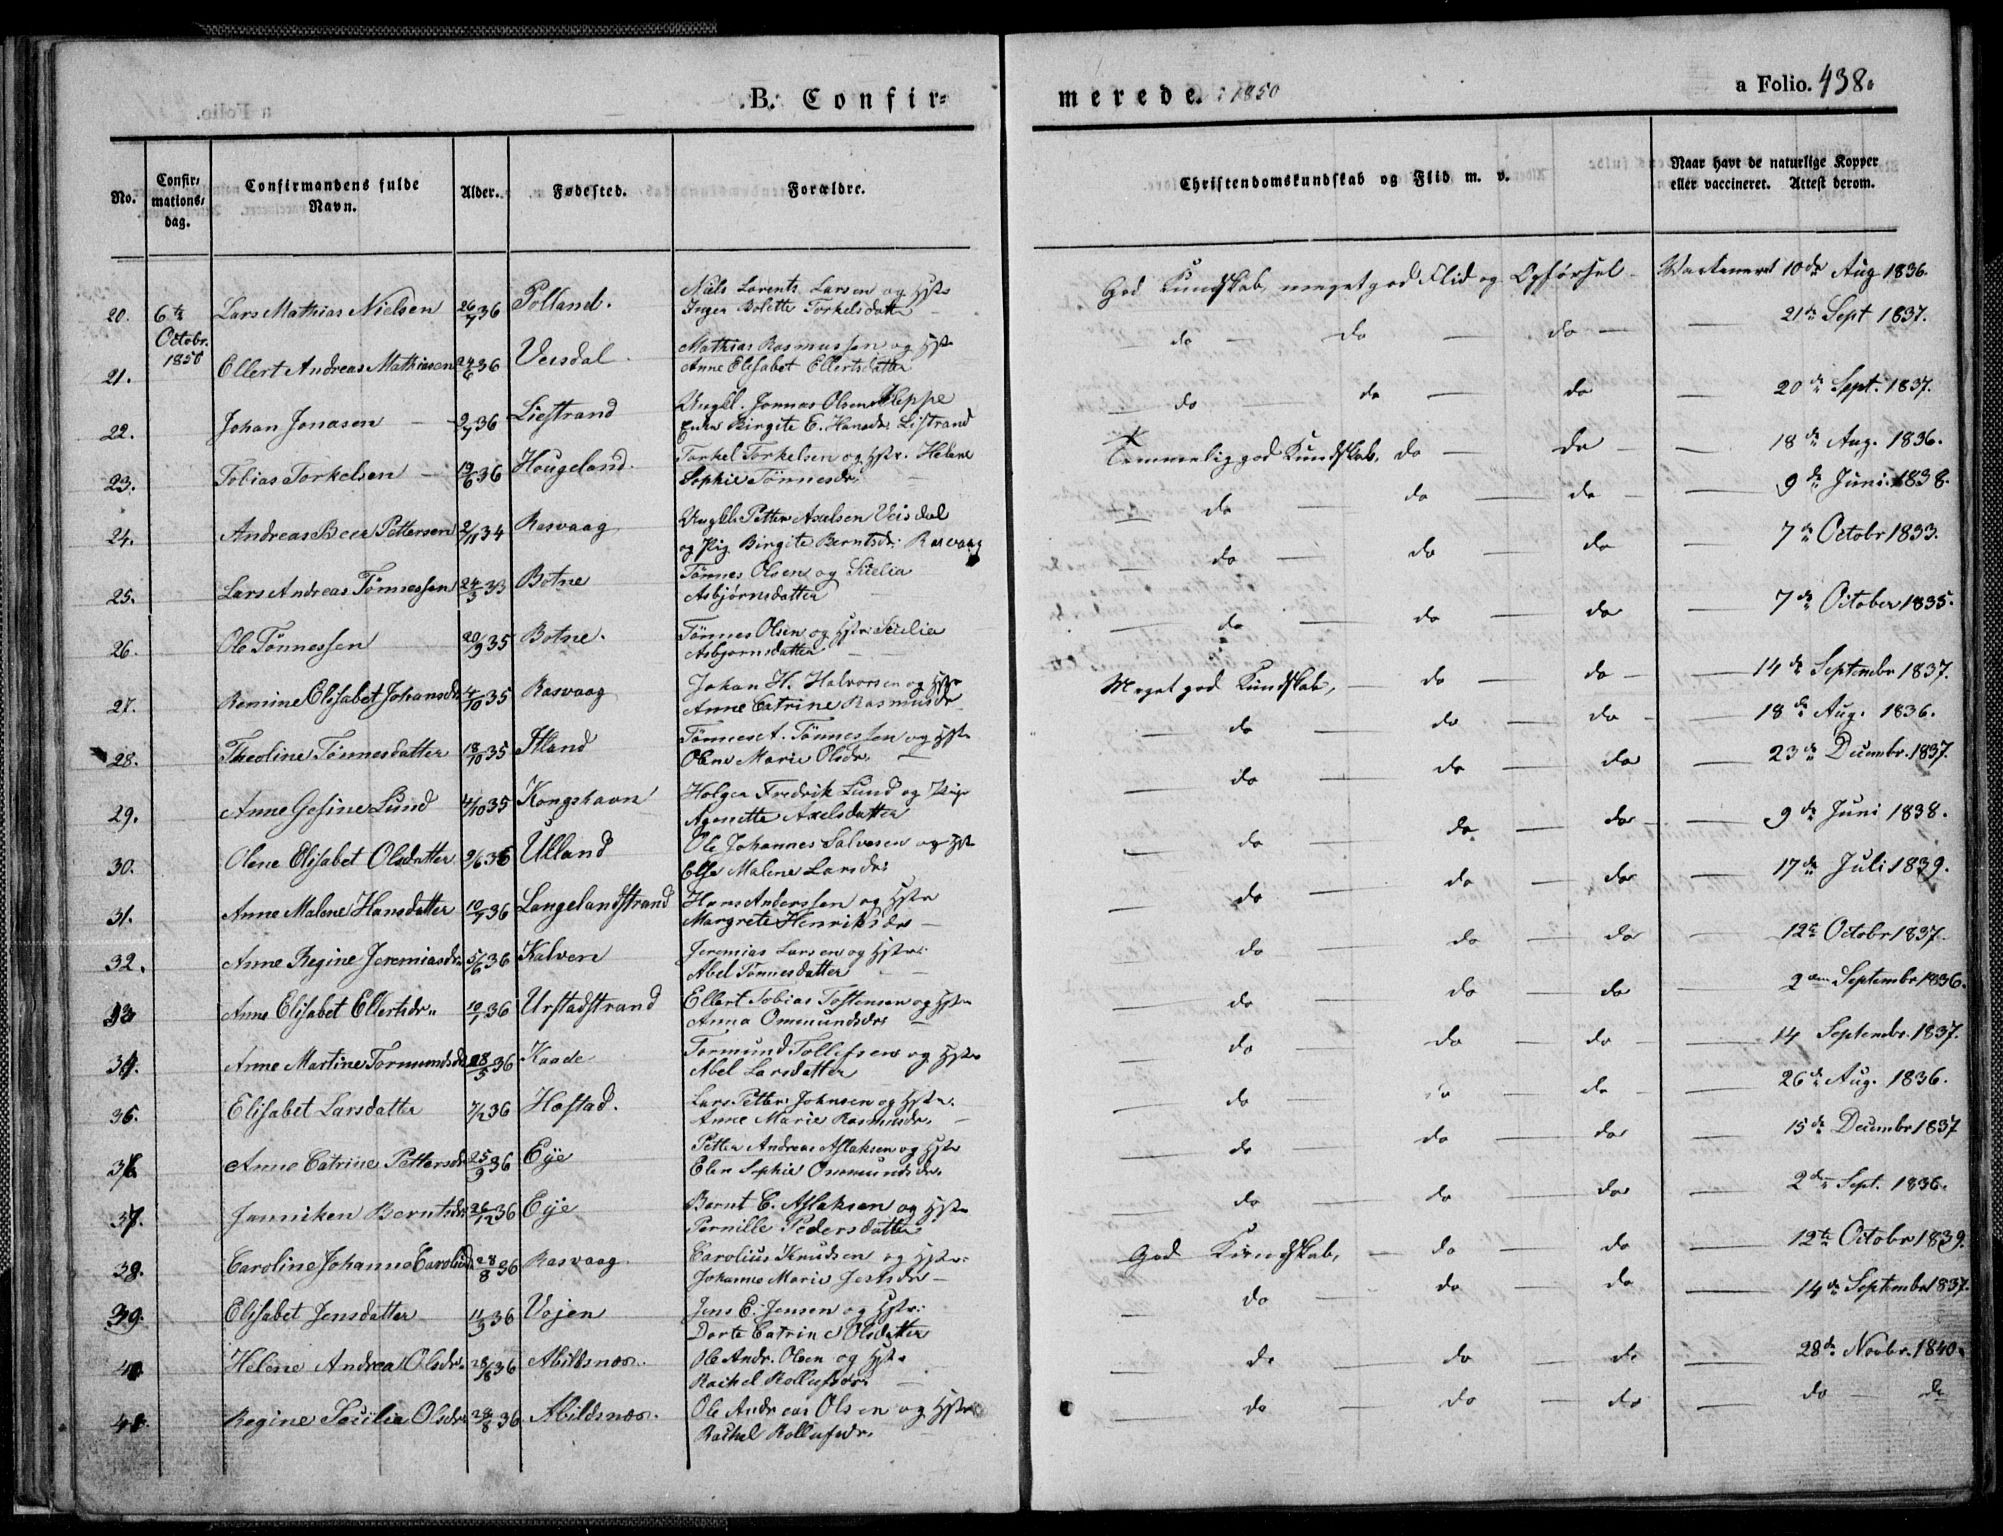 B. Confir-
merede. 1850
a Folio. 438.
No.
Confir-
mations-
dag.
Confirmandens fulde
Navn.
Alder.
Fødested.
Forældre.
Christendomskundskab og Flid m. v.
Naar havt de naturlige Kopper
eller vaccineret. Attest derom.
20. 6te Octobr. 1850 Lars Mathias Nielsen 26/7 36 Polland. Niels Lorents Larsen og Hstr
Inger Bolette Torkelsdatter
God Kundskab, meget god Flid og Opførsel - Vaccineret 10de Aug 1836.
21. Ellert Andreas Mathiasen 24/6 36 Veisdal. Mathias Rasmussen og Hstr
Anne Elisabet Ellertsdatter
do - do - do - 21de Sept 1837.
22. Johan Jonasen 36 Liestrand Ungkl. Jonnas Olsen Kleppe
Enke Birgite E. Hansdr. Listrand
do - do - do 20de Sept. 1837.
23. Tobias Torkelsen 19/6 36 Hougeland. Torkel Torkelsen og Hstr. Helene
Sophie Tønnesdr.
Temmelig god Kundskab, do - do - 18de Aug. 1836.
24. Andreas Beer Pettersen 2/11 34 Rasvaag Ungkl. Petter Axelsen Veisdal
og Pig. Birgite Berntsdr. Rasvaag
do do - do - 9de Juni 1838.
25. Lars Andreas Tønnessen 24/3 33 Botne Tønnes Olsen og Sicelia
Asbjørnsdatter
do - do - do - 7de Octobr 1833.
26. Ole Tønnessen 20/9 35 Botne. Tønnes Olsen og Hstr. Sicelia
Asbjørnsdatter
do - do - do - 7de October 1835.
27. Romine Elisabet Johansdr 4/10 35 Rasvaag Johan H. Halvorsen og Hstr
Anne Catrine Rasmusdr
Meget god Kundskab, - do - do - 14de Septembr 1837.
28. Theoline Tønnesdatter 18/10 35 Itland Tønnes A. Tønnessen og Hstr
Olene Marie Olsdr.
do - do - do - 18de Aug. 1836.
29. Anne Gesine Lund 4/10 35 Kongshavn Holger Fredrik Lund og Pige
Agenette Axelsdatter
do - do - do - 23de Decembr. 1837.
30. Olene Elisabet Olsdatter 2/6 36 Ulland Ole Johannes Salvesen og Hst
Else Malene Larsdr.
do - do - do - 9de Juni 1838.
31. Anne Malene Hansdatter 10/7 36 Langelandstrand Hans Anderssen og Hstr
Margrete Henriksdr
do - do - do - 17de Juli 1839.
32. Anne Regine Jeremiasdr. 5/6 36 Kalven Jeremias Larsen og Hstr.
Abel Tønnesdatter
do - do - do - 12te Octobr 1837.
33. Anne Elisabet Ellertsdr. 10/1 36 Urstadstrand Ellert Tobias Tostensen og Hstr
Anna Ommundsdr
do - do - do - 2den Septembr 1836.
34. Anne Martine Tormundsdr 28/5 36 Kaade Tormund Tollefsen og Hstr
Abel Larsdatter
do - do - do - 14 Septembr. 1837.
35. Elisabet Larsdatter 7/12 36 Hæstad. Lars Petter Johnsen og Hstr.
Anne Marie Rasmusdr.
do - do - do - 26de Aug. 1836.
36. Anne Catrine Pettersdr 25/9 36 Eye Petter Andreas Aslaksen og Hstr
Elen Sophie Ommundsdr.
do - do - do - 15de Decembr 1837
37. Janniken Berntsdr 26/12 36 Eye Bernt E. Aslaksen og Hstr
Pernille Pedersdatter
do - do - do - 2den Sept. 1836.
38. Caroline Johanne Carolisd. 28/8 36 Rasvaag Carolius Knudsen og Hstr.
Johanne Marie Jensdr
God Kundskab, - do - do - 12te Octobr 1839.
39. Elisabet Jensdatter 11/9 36 Vojen Jens E. Jensen og Hstr.
Dorte Catrine Olsdatter
do - do - do - 14de Septembr 1837.
40. Helene Andrea Olsdr. 28/8 36 Abildsnæs. Ole Andr. Olsen og Hstr
Rachel Rollufsdr.
do - do - do - 28de Novbr. 1840.
41. Regine Sicilia Olsdr 28/8 36 Abildsnæs. Ole Andreas Olsen og Hstr
Rachel Rollufsdr.
do - do - do do - do